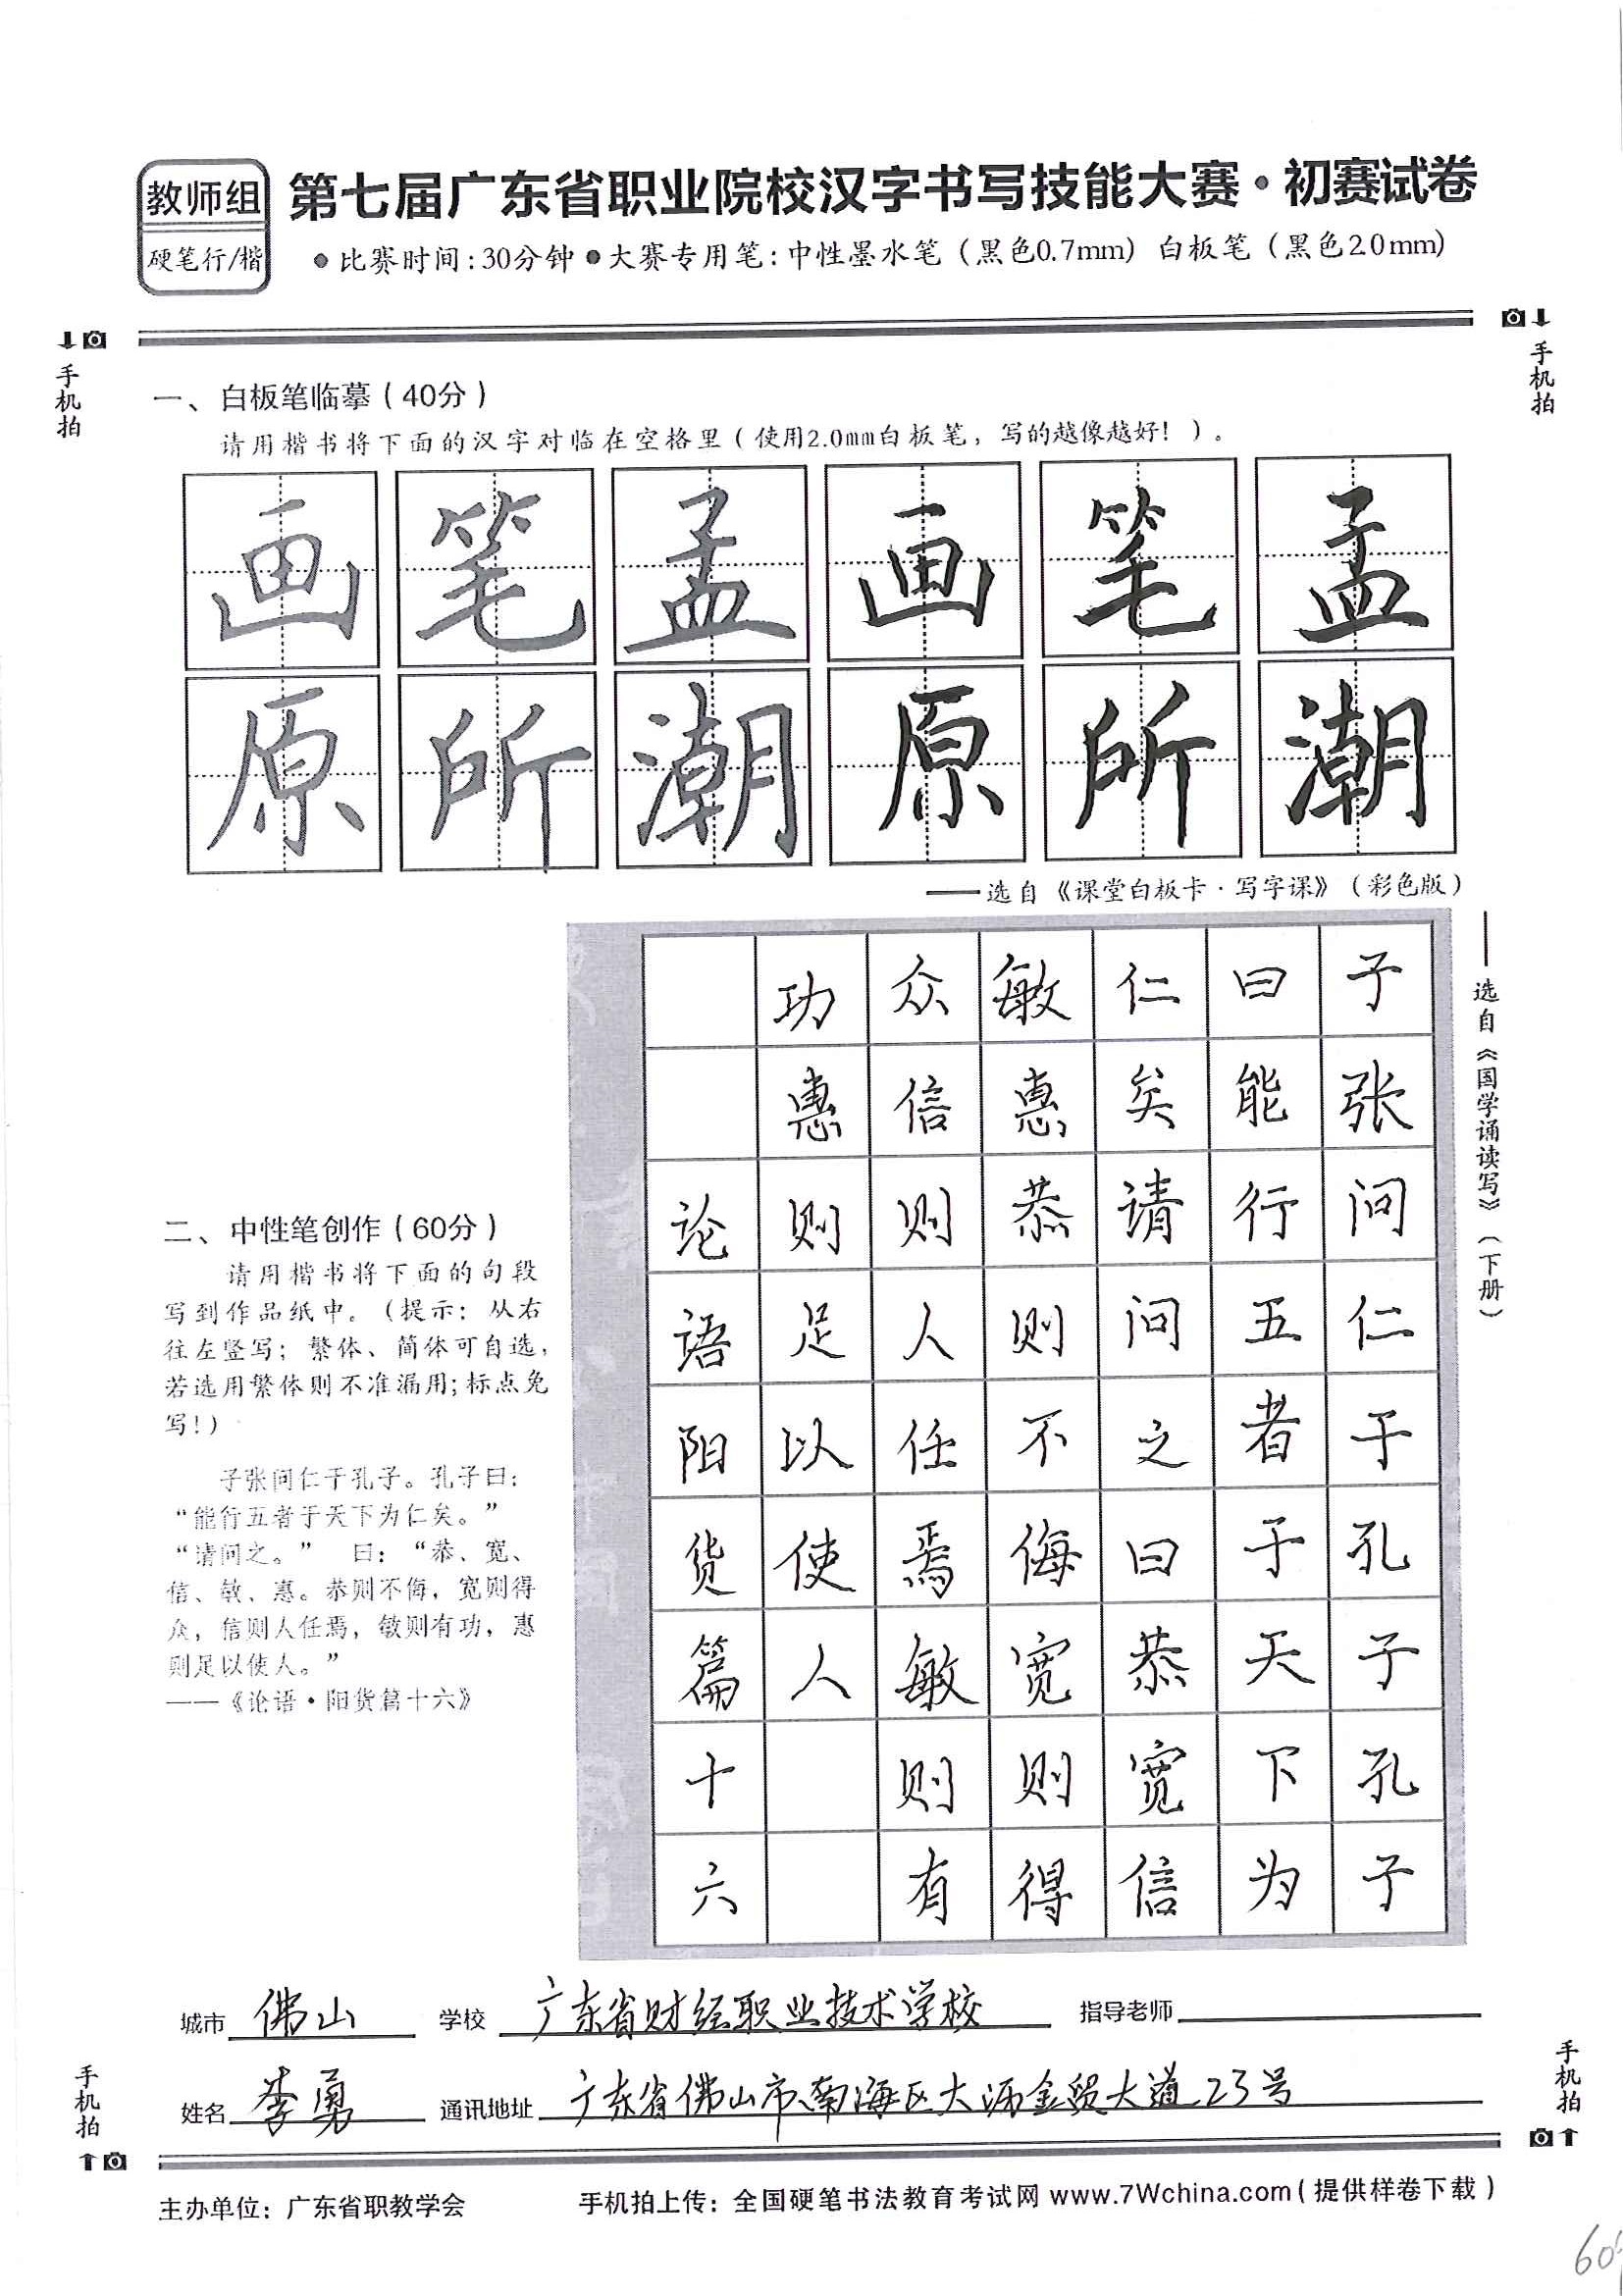 教师组
硬笔行/楷
第七届广东省职业院校汉字书写技能大赛·初赛试卷
●比赛时间:30分钟●大赛专用笔:中性墨水笔(黑色0.7mm) 白板笔(黑色2.0mm)
手机拍
手机拍
一、白板笔临摹(40分)
请用楷书将下面的汉字对临在空格里(使用2.0mm白板笔,写的越像越好!)。
画笔孟画笔孟
原所潮原所潮
——选自《课堂白板卡·写字课》(彩色版)
——选自《国学诵读写》(下册)
二、中性笔创作(60分)
请用楷书将下面的句段
写到作品纸中。(提示:从右
往左竖写;繁体、简体可自选,
若选用繁体则不准漏用;标点免
写!)
子张问仁于孔子。孔子曰:
“能行五者于天下为仁矣。”
“请问之。” 曰:“恭、宽、
信、敏、惠。恭则不侮,宽则得
众,信则人任焉,敏则有功,惠
则足以使人。”
——《论语·阳货篇十六》
子张问仁于孔子孔子
曰能行五者于天下为
仁矣请问之曰恭宽信
敏惠恭则不侮宽则得
众信则人任焉敏则有
功惠则足以使人
论语阳货篇十六
城市 佛山 学校 广东省财经职业技术学校 指导老师
姓名 李勇 通讯地址 广东省佛山市南海区大沥金贸大道23号
手机拍
手机拍
主办单位:广东省职教学会 手机拍上传:全国硬笔书法教育考试网 www.7Wchina.com(提供样卷下载)